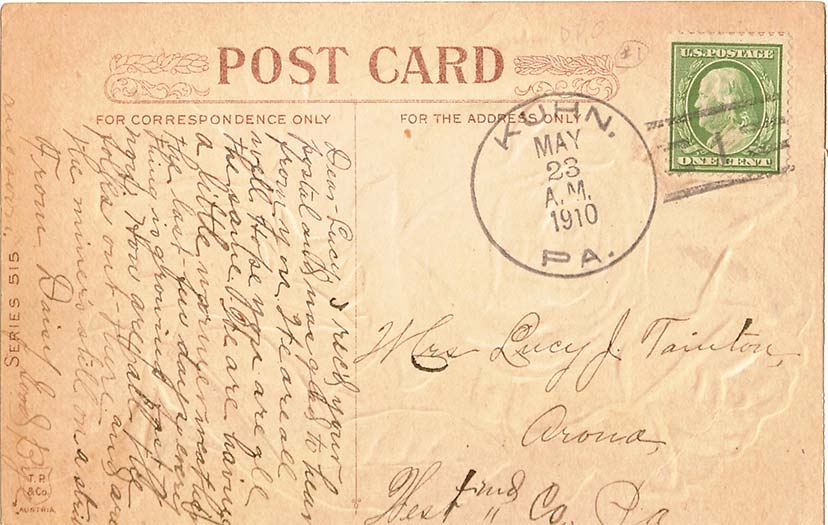 POST CARD
FOR CORRESPONDENCE ONLY
FOR THE ADDRESS ONLY
U.S. POSTAGE
ONE CENT
1
#1
KUHN.
MAY
23
A.M.
1910
PA.
Dear Lucy I recd your
postal and was glad to hear
from you. We are all
well. Hope you are
the same. We are having
a little warmer weather
the last few days every
thing is growing
now. How are all the
folks out there and are
the miners still on a stri
From Daisy Good Bye
ans soon
Mrs Lucy J. Tainton,
Arona,
West Co., Pa
SERIES 515
T.P.
& Co.
AUSTRIA